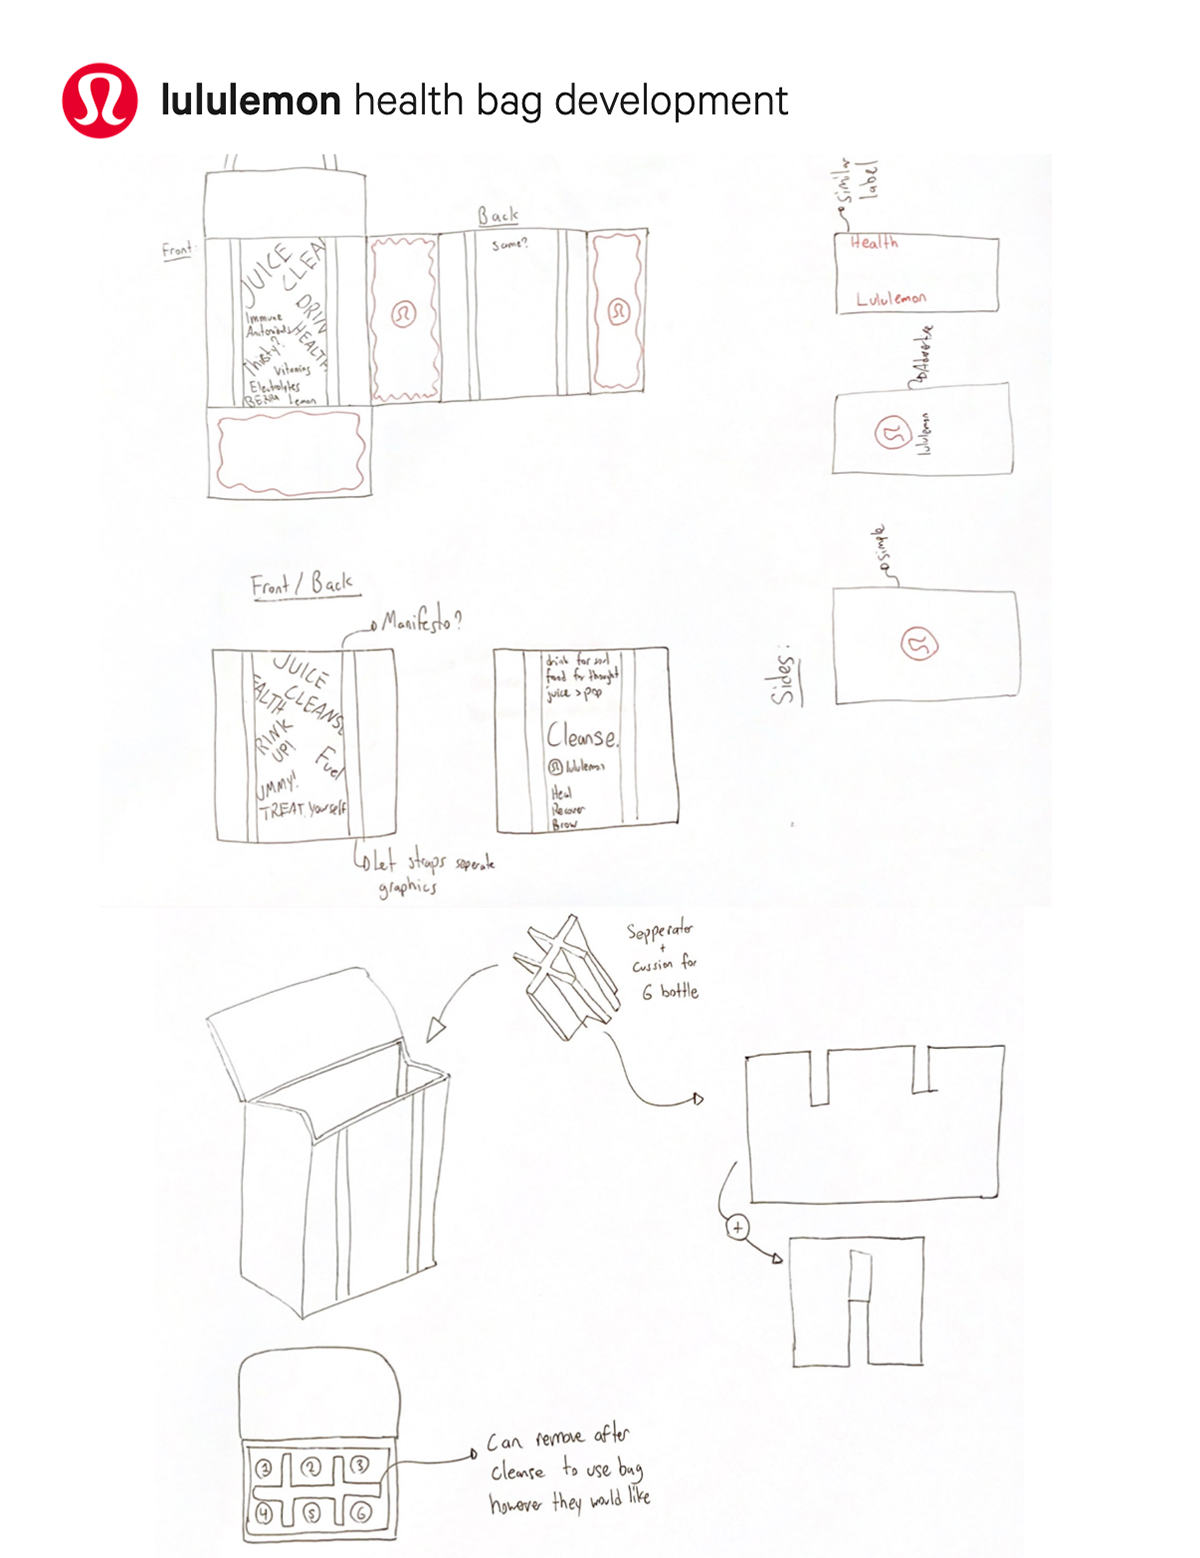 lululemon health bag development
Front:
JUICE
CLEA
DRIN
HEALTH
Immune
Thirsty?
Vitamins
Electrolytes
Lemon
Back
Same?
similar
label
Health
Lululemon
lululemon
simple
Sides:
Front / Back
Manifesto?
JUICE
CLEANSE
EALTH
RINK
UP!
Fuel
UMMY!
TREAT yourself
Let straps seperate
graphics
drink for soul
food for thought
juice > pop
Cleanse.
lululemon
Heal
Recover
Sepperator
+
Cussion for
6 bottle
+
1 2 3
4 5 6
Can remove after
cleanse to use bag
however they would like